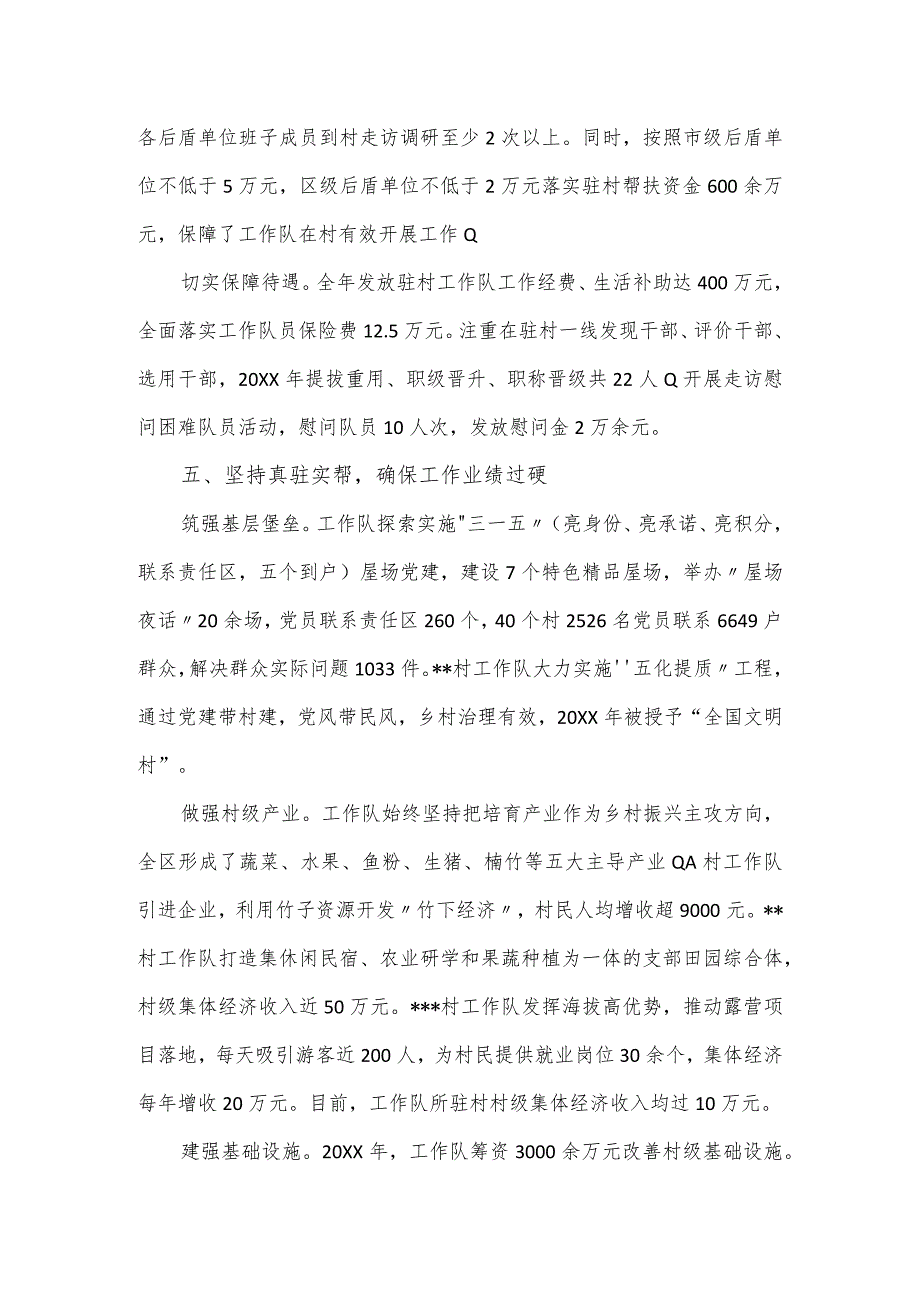 各后盾单位班子成员到村走访调研至少 2 次以上。同时，按照市级后盾单
位不低于 5 万元，区级后盾单位不低于 2 万元落实驻村帮扶资金 600 余万
元，保障了工作队在村有效开展工作 Q
切实保障待遇。全年发放驻村工作队工作经费、生活补助达 400 万元，
全面落实工作队员保险费 12.5 万元。注重在驻村一线发现干部、评价干部、
选用干部，20XX 年提拔重用、职级晋升、职称晋级共 22 人 Q 开展走访慰
问困难队员活动，慰问队员 10 人次，发放慰问金 2 万余元。
五、坚持真驻实帮，确保工作业绩过硬
筑强基层堡垒。工作队探索实施"三一五〃（亮身份、亮承诺、亮积分，
联系责任区，五个到户）屋场党建，建设 7 个特色精品屋场，举办〃屋场
夜话〃20 余场，党员联系责任区 260 个，40 个村 2526 名党员联系 6649 户
群众，解决群众实际问题 1033 件。**村工作队大力实施''五化提质〃工程，
通过党建带村建，党风带民风，乡村治理有效，20XX 年被授予“全国文明
村”。
做强村级产业。工作队始终坚持把培育产业作为乡村振兴主攻方向，
全区形成了蔬菜、水果、鱼粉、生猪、楠竹等五大主导产业 QA 村工作队
引进企业，利用竹子资源开发〃竹下经济〃，村民人均增收超 9000 元。**
村工作队打造集休闲民宿、农业研学和果蔬种植为一体的支部田园综合体，
村级集体经济收入近 50 万元。***村工作队发挥海拔高优势，推动露营项
目落地，每天吸引游客近 200 人，为村民提供就业岗位 30 余个，集体经济
每年增收 20 万元。目前，工作队所驻村村级集体经济收入均过 10 万元。
建强基础设施。20XX 年，工作队筹资 3000 余万元改善村级基础设施。